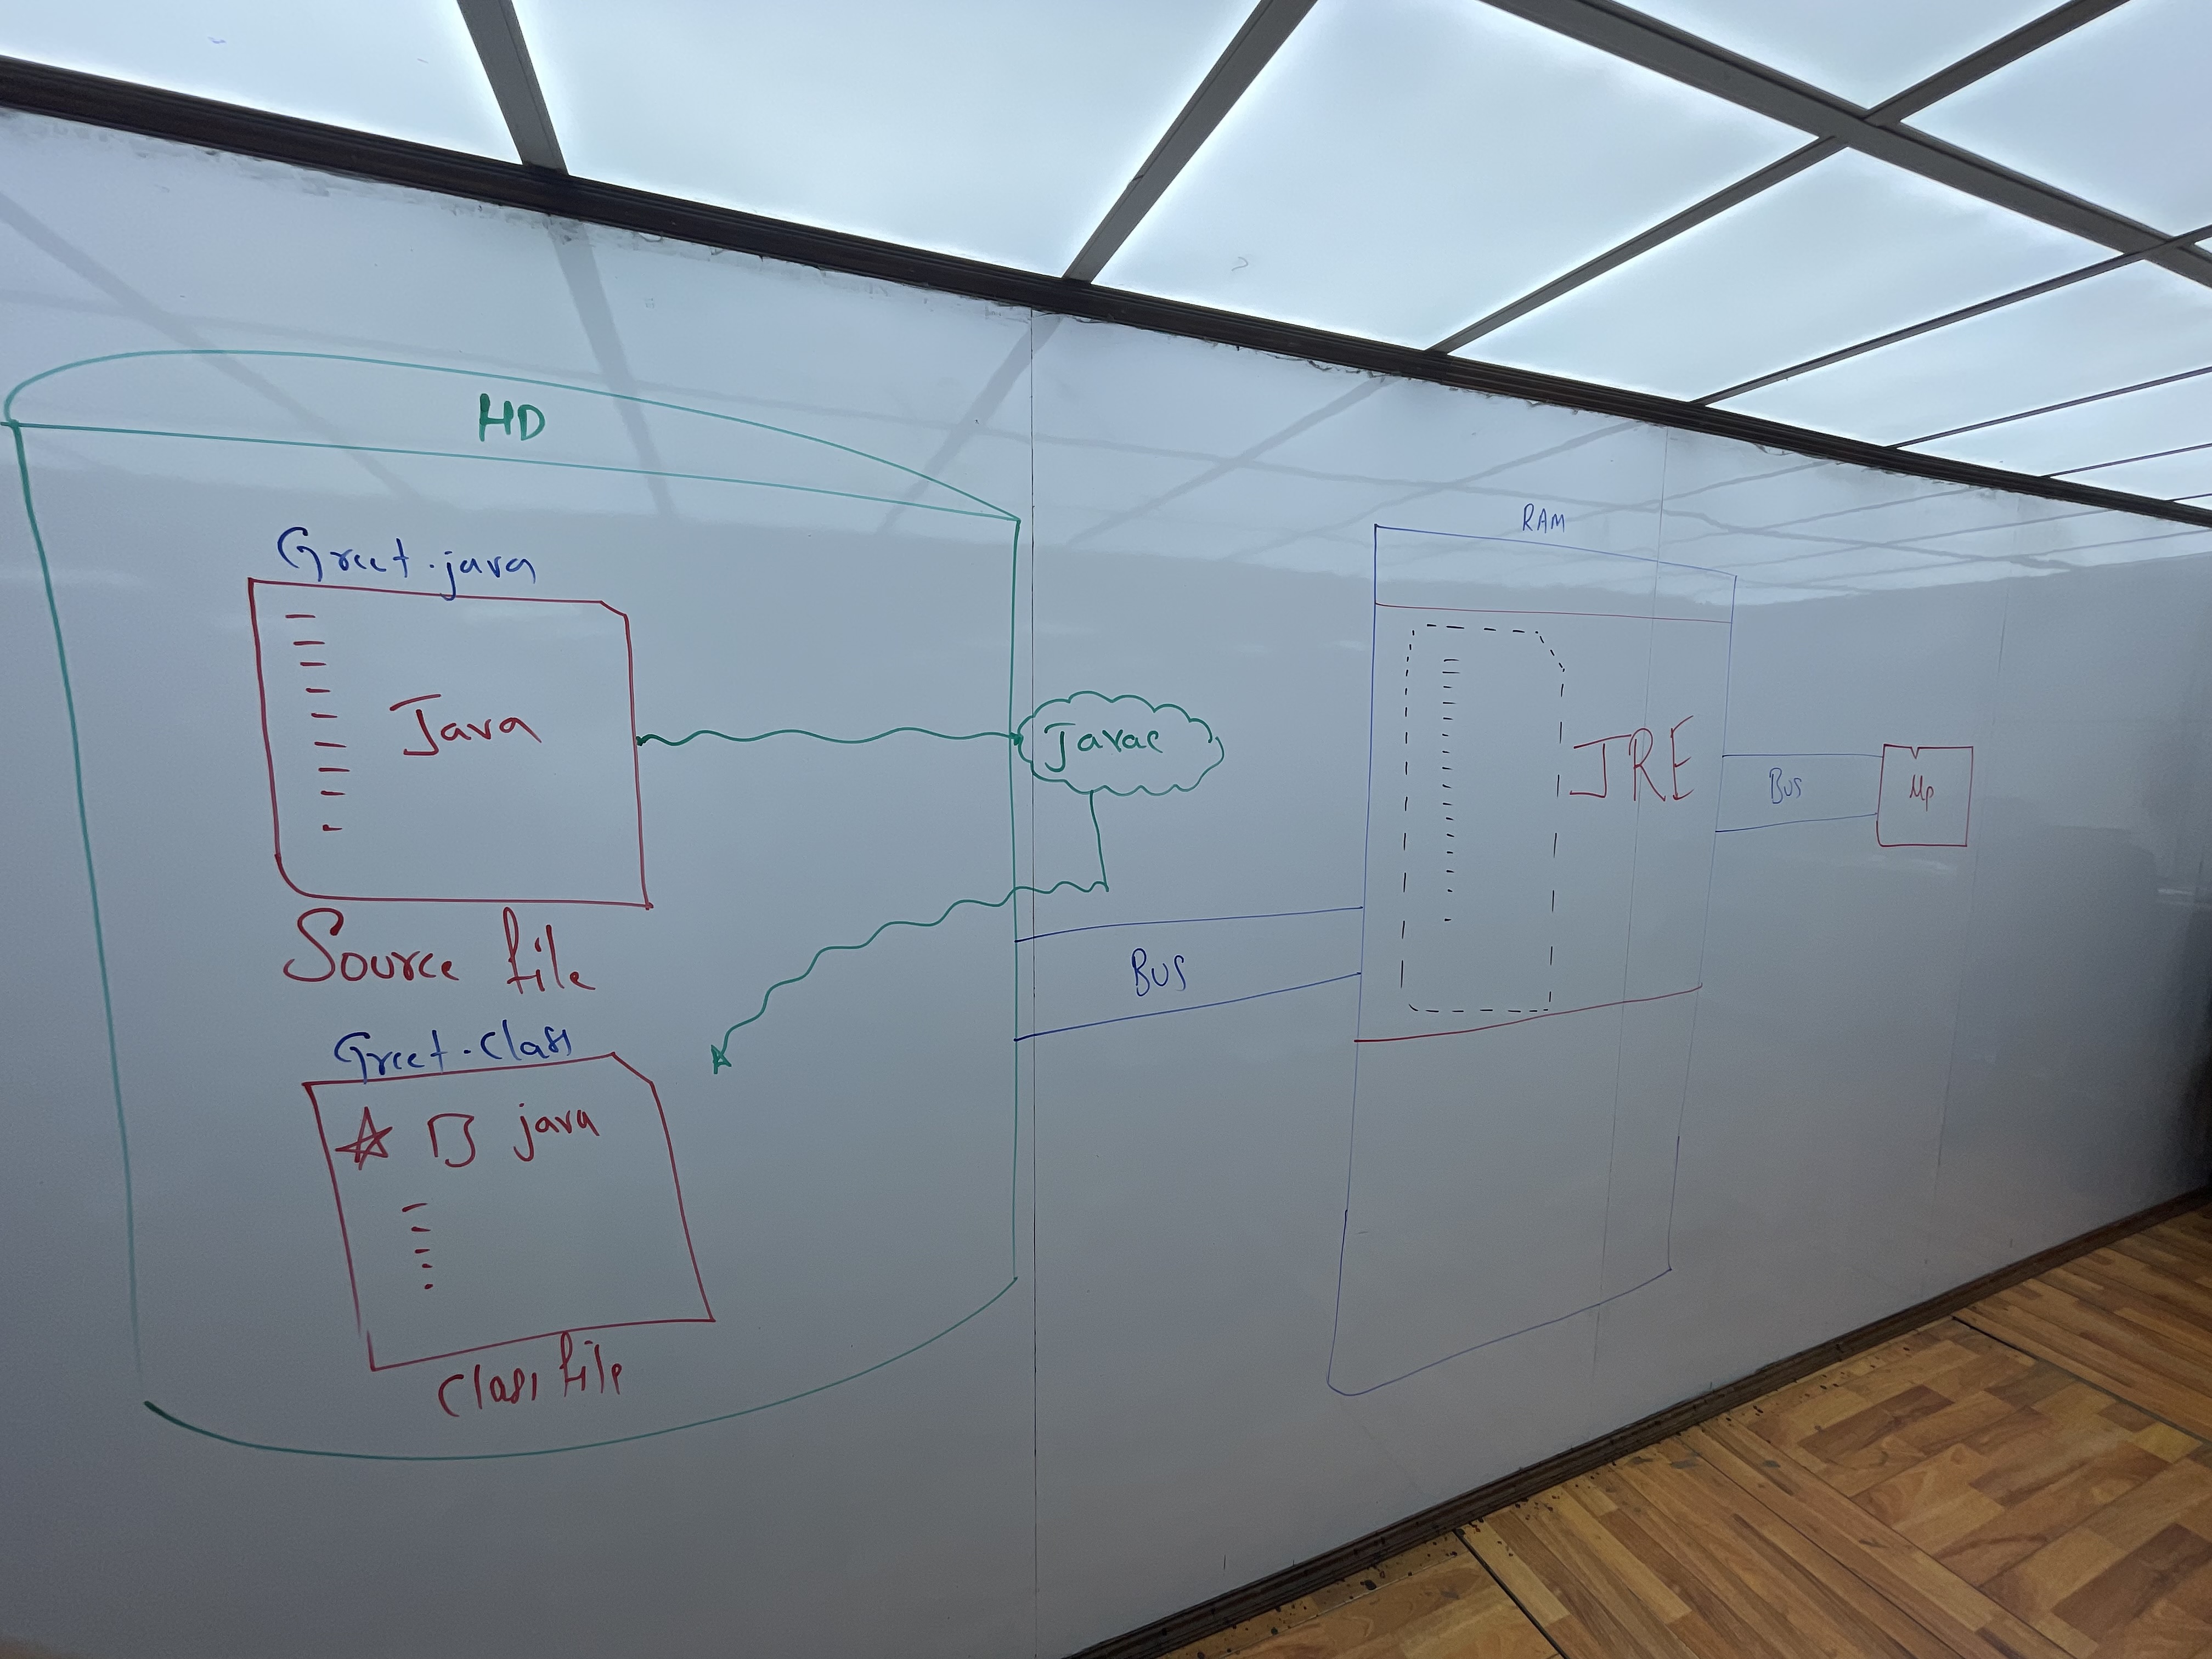 HD
Greet.java
Java
Source file
Greet.class
B java
Class file
Javac
BUS
RAM
JRE
BUS
Mp